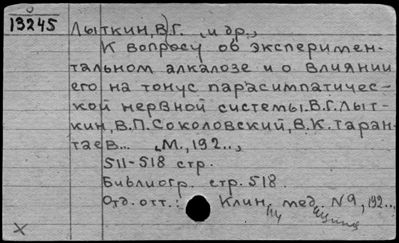 13245
Лыткин, В.Г. и др.,
К вопросу об эксперимен-
тальном алкалозе и о влиянии
его на тонус парасимпатичес-
кой нервной системы. В.Г. Лыт-
кин, В.П. Соколовский, В.К. Таран-
таев... М., 192..,
511-518 стр.
Библиогр. стр. 518.
Отд. отт.: Клин. мед. №9, 192..,